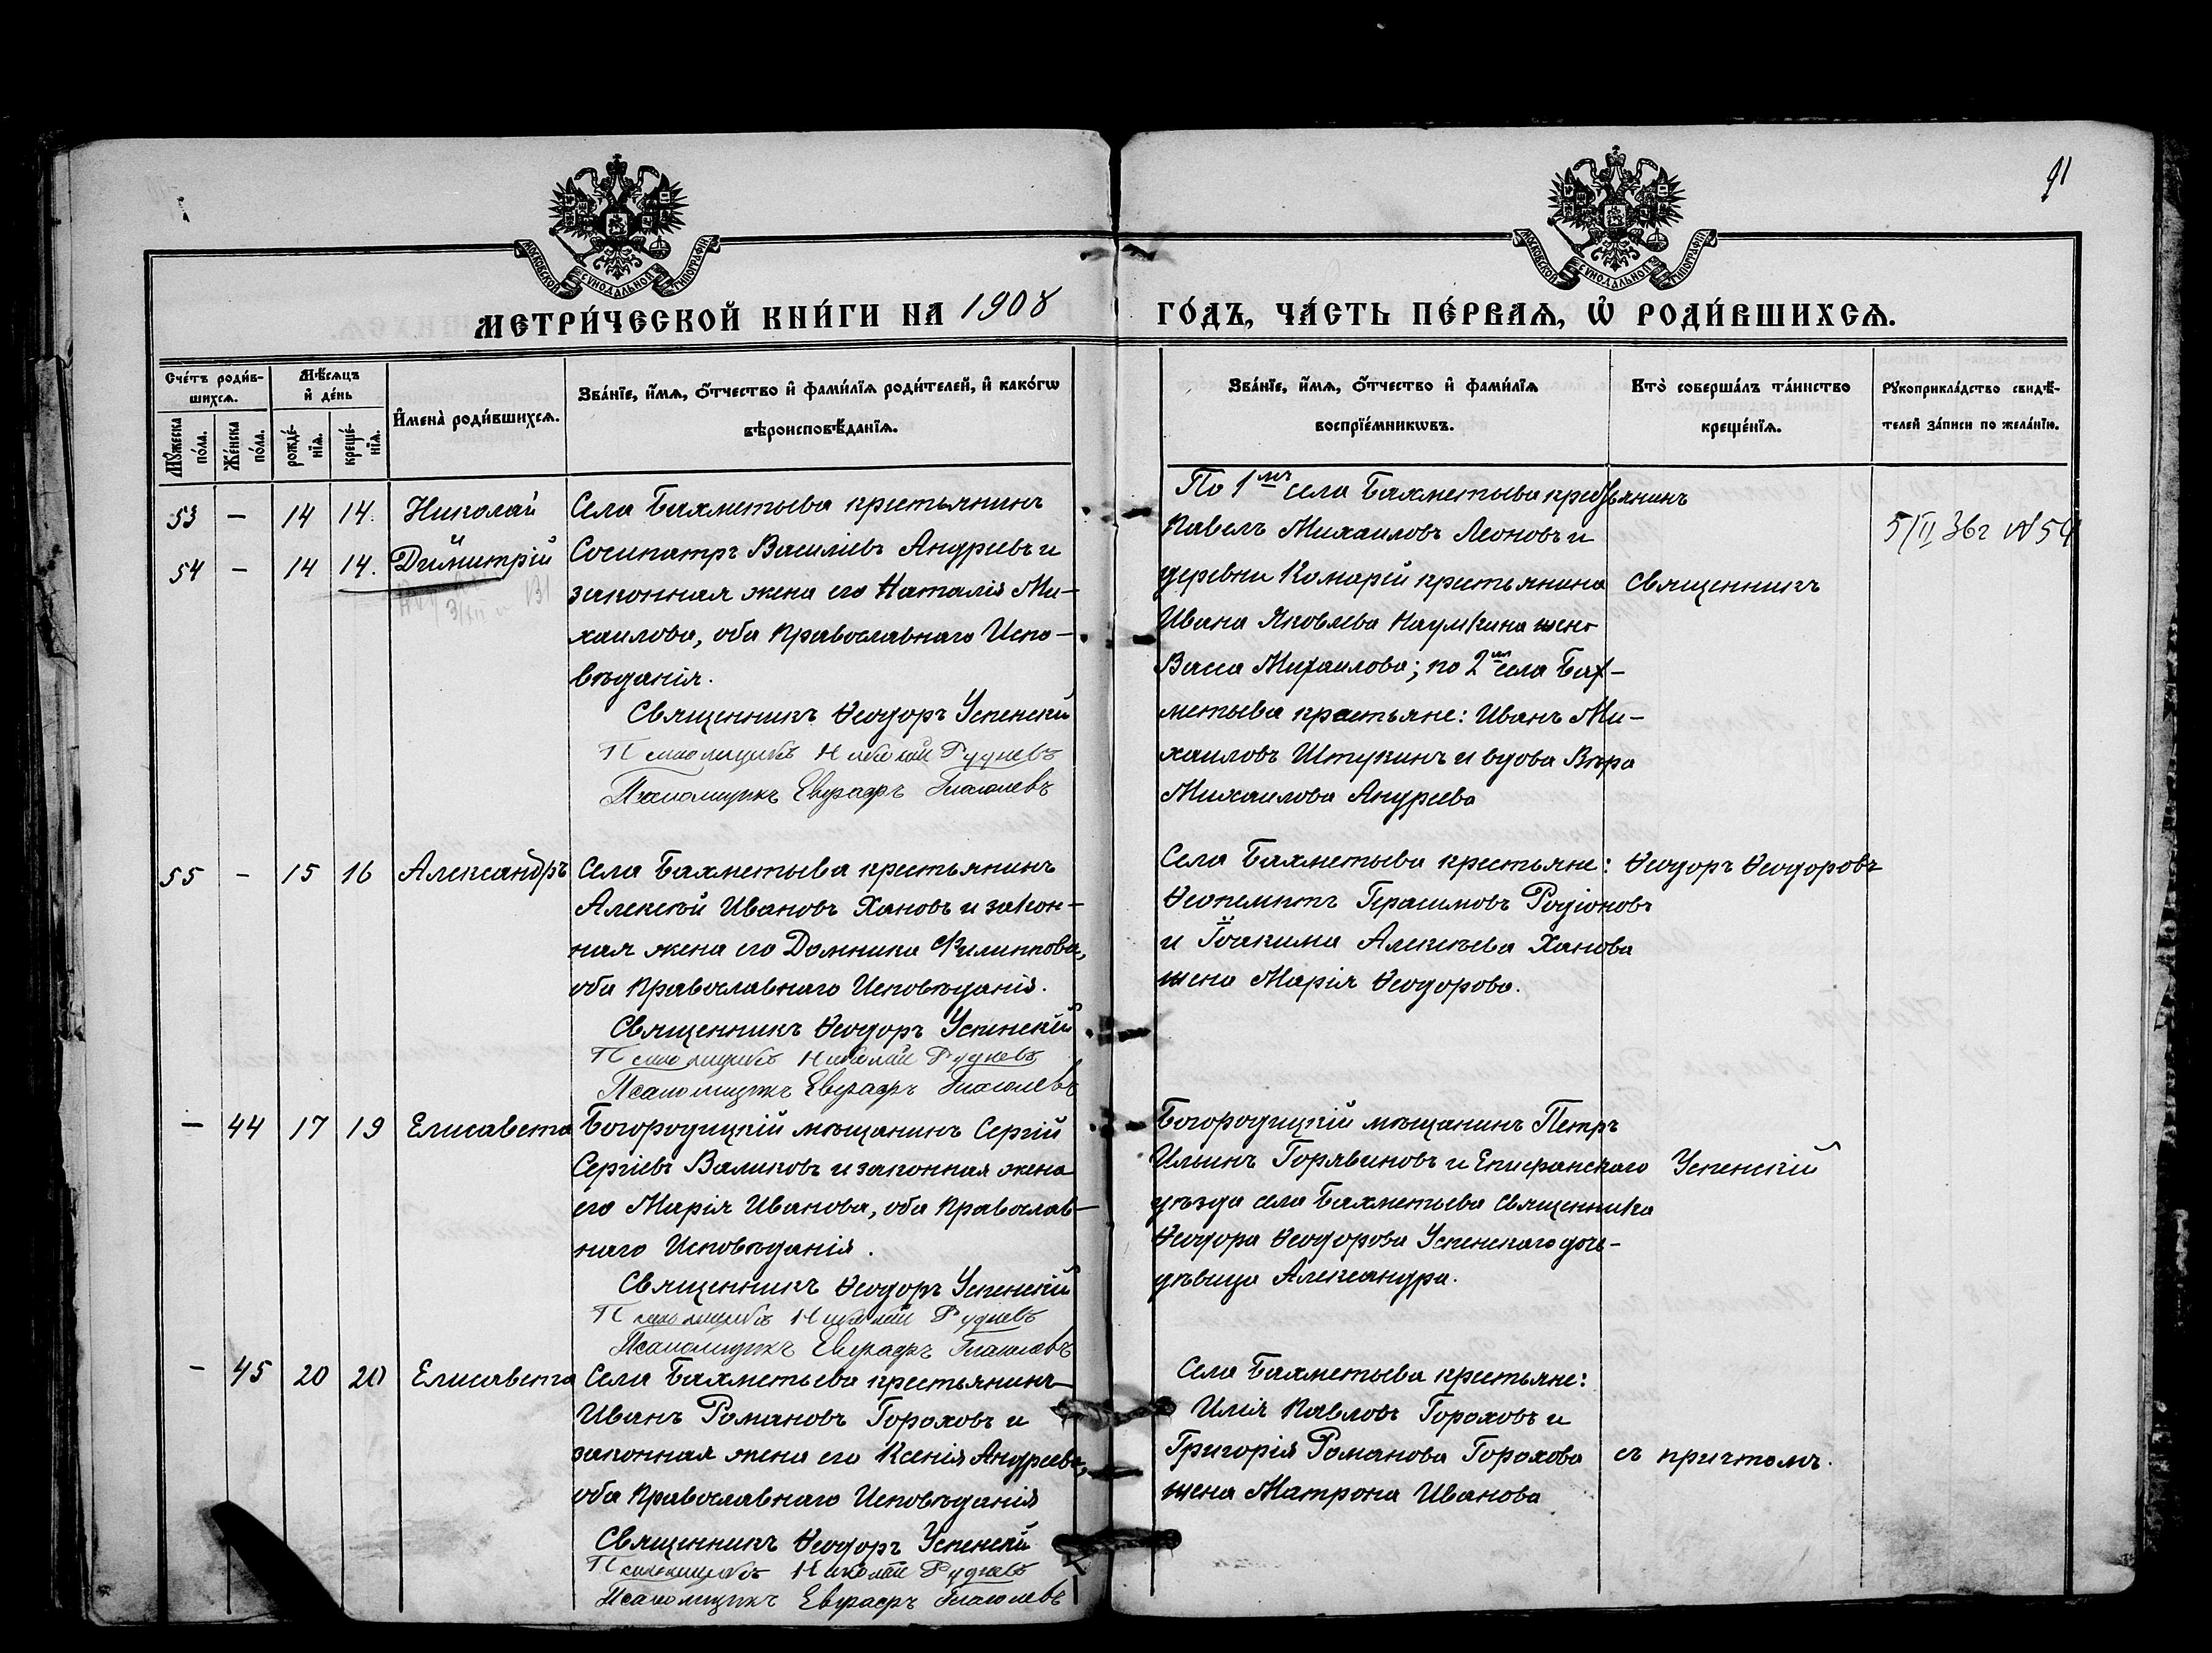 91
МОСКОВСКОЙ СѴНОДАЛЬНОЙ ТИПОГРАФІИ
МОСКОВСКОЙ СѴНОДАЛЬНОЙ ТИПОГРАФІИ
МЕТРИ́ЧЕСКОЙ КНИ́ГИ НА 1908 ГО́ДЪ, ЧА́СТЬ ПЕ́РВАѦ, Ѡ҆ РОДИ́ВШИХСѦ.
Сче́тъ роди́в-
шихсѧ.
Мꙋ́жеска по́ла.
Же́нска по́ла.
Мѣ́сѧцъ
и҆ де́нь
рожде́-
нїѧ.
креще́-
нїѧ.
И҆мена̀ роди́вшихсѧ.
Зва́нїе, и҆́мѧ, ѻ҆́тчество и҆ фами́лїѧ роди́телей, и҆ како́гѡ
вѣроисповѣ́данїѧ.
Зва́нїе, и҆́мѧ, ѻ҆́тчество и҆ фами́лїѧ
воспрїе́мникѡвъ.
Кто̀ соверша́лъ та́инство
креще́нїѧ.
Рꙋкоприкла́дство свидѣ́-
телей за́писи по жела́нїю.
53 — 14 14. Николай
54 — 14 14. Димитрій
3/XII 131
Села Бахметьева крестьянинъ
Сосипатръ Василіевъ Андреевъ и
законная жена его Наталія Ми-
хаилова, оба Православнаго Испо-
вѣданія.
Священникъ Ѳеодоръ Успенскій
Псаломщикъ Николай Рудневъ
Псаломщикъ Евграфъ Глаголевъ
По 1мъ села Бахметьева крестьянинъ
Павелъ Михаиловъ Леоновъ и
деревни Комарей крестьянина
Ивана Яковлева Наумкина жена
Васса Михаилова; по 2мъ села Бах-
метьева крестьяне: Иванъ Ми-
хаиловъ Штукинъ и вдова Вѣра
Михаилова Андреева
Священникъ
5/II 36г N 54
55 — 15 16 Александръ
Села Бахметьева крестьянинъ
Алексѣй Ивановъ Хановъ и закон-
ная жена его Домника Филиппова,
оба Православнаго Исповѣданія.
Священникъ Ѳеодоръ Успенскій
Псаломщикъ Николай Рудневъ
Псаломщикъ Евграфъ Глаголевъ
Села Бахметьева крестьяне:
Ѳеопемптъ Герасимовъ Родіоновъ
и Іоакима Алексѣева Ханова
жена Марія Ѳеодорова.
Ѳеодоръ Ѳеодоровъ
— 44 17 19 Елисавета
Богородицкій мѣщанинъ Сергій
Сергіевъ Валиковъ и законная жена
его Марія Иванова, оба Православ-
наго Исповѣданія.
Священникъ Ѳеодоръ Успенскій
Псаломщикъ Николай Рудневъ
Псаломщикъ Евграфъ Глаголевъ
Богородицкій мѣщанинъ Петръ
Ильинъ Горявиновъ и Епифанскаго
уѣзда села Бахметьева священника
Ѳеодора Ѳеодорова Успенскаго дочь
дѣвица Александра.
Успенскій
— 45 20 20 Елисавета
Села Бахметьева крестьянинъ
Иванъ Романовъ Гороховъ и
законная жена его Ксенія Андреева,
оба Православнаго Исповѣданія
Священникъ Ѳеодоръ Успенскій
Псаломщикъ Николай Рудневъ
Псаломщикъ Евграфъ Глаголевъ
Села Бахметьева крестьяне:
Илія Павловъ Гороховъ и
Григорія Романова Горохова
жена Матрона Иванова
съ причтомъ.